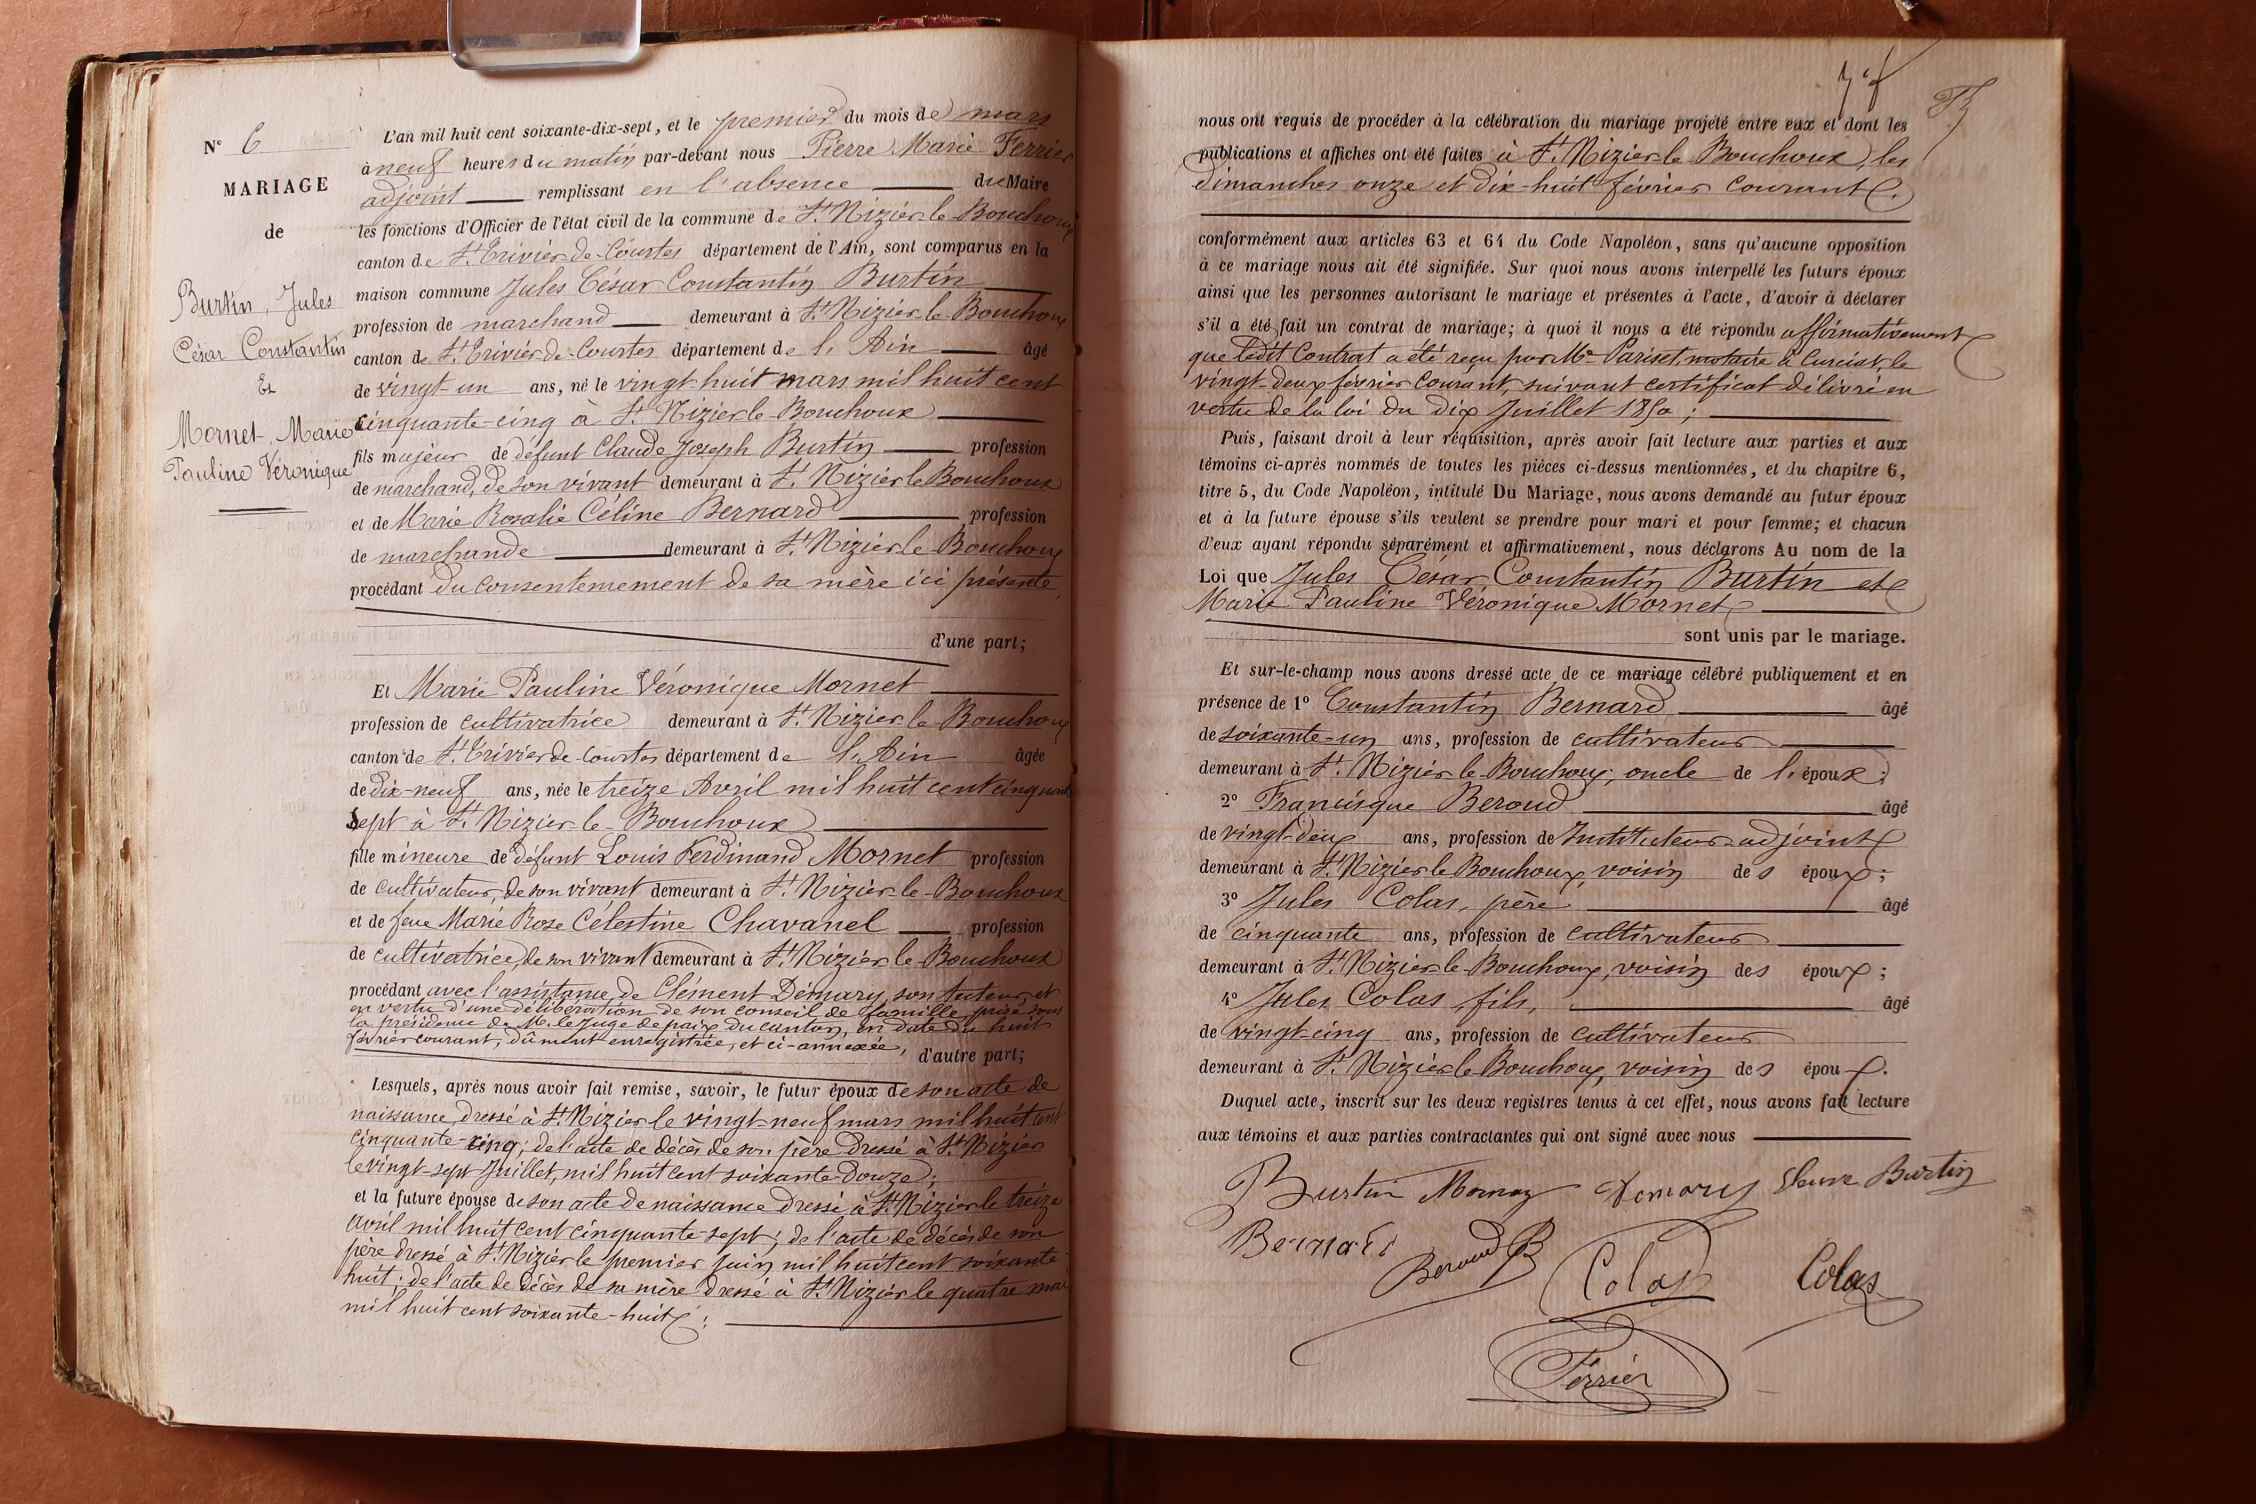 N° 6
MARIAGE
de
Burtin, Jules
César Constantin
Et
Mornet, Marie
Pauline Véronique
L'an mil huit cent soixante-dix-sept, et le premier du mois de mars
à neuf heures du matin par-devant nous Pierre Marie Ferrier
adjoint remplissant en l'absence du Maire
les fonctions d'Officier de l'état civil de la commune de St Nizier-le-Bouchoux
canton de St Trivier-de-Courtes département de l'Ain, sont comparus en la
maison commune Jules César Constantin Burtin
profession de marchand demeurant à St Nizier-le-Bouchoux
canton de St Trivier-de-Courtes département de l'Ain âgé
de vingt-un ans, né le vingt-huit mars mil huit cent
cinquante-cinq à St Nizier-le-Bouchoux
fils majeur de défunt Claude Joseph Burtin profession
de marchand, de son vivant demeurant à St Nizier le Bouchoux
et de Marie Rosalie Céline Bernard profession
de marchande demeurant à St Nizier-le-Bouchoux
procédant du consentemement de sa mère ici présente,
d'une part;
Et Marie Pauline Véronique Mornet
profession de cultivatrice demeurant à St Nizier-le Bouchoux
canton de St Trivier de-Courtes département de l'Ain âgée
de dix-neuf ans, née le treize Avril mil huit cent cinquante
sept à St Nizier-le-Bouchoux
fille mineure de défunt Louis Ferdinand Mornet profession
de cultivateur, de son vivant demeurant à St Nizier-le-Bouchoux
et de feue Marie Rose Célestine Chavanel profession
de cultivatrice, de son vivant demeurant à St Nizier le-Bouchoux
procédant avec l'assistance de Clément Démary, son tuteur, et
en vertu d'une délibération de son conseil de famille, prise sous
la présidence de M. le Juge de paix du canton, en date du huit
février courant, dûment enregistrée, et ci-annexée, d'autre part;
Lesquels, après nous avoir fait remise, savoir, le futur époux de son acte de
naissance dressé à St Nizier le vingt-neuf mars mil huit cent
cinquante-cinq; de l'acte de décès de son père dressé à St Nizier
le vingt-sept Juillet, mil huit cent soixante-Douze;
et la future épouse de son acte de naissance dressé à St Nizier le treize
avril mil huit cent cinquante-sept; de l'acte de décès de son
père dressé à St Nizier le premier juin mil huit cent soixante
huit; de l'acte de décès de sa mère dressé à St Nizier le quatre mai
mil huit cent soixante-huit;
nous ont requis de procéder à la célébration du mariage projeté entre eux et dont les
publications et affiches ont été faites à St Nizier-le Bouchoux, les
dimanches onze et dix-huit février courant.
conformément aux articles 63 et 64 du Code Napoléon, sans qu'aucune opposition
à ce mariage nous ait été signifiée. Sur quoi nous avons interpellé les futurs époux
ainsi que les personnes autorisant le mariage et présentes à l'acte, d'avoir à déclarer
s'il a été fait un contrat de mariage; à quoi il nous a été répondu affirmativement
que ledit Contrat a été reçu par Me Pariset, notaire à Curciat, le
vingt-deux février courant, suivant certificat délivré en
vertu de la loi du Dix Juillet 1850;
Puis, faisant droit à leur réquisition, après avoir fait lecture aux parties et aux
témoins ci-après nommés de toutes les pièces ci-dessus mentionnées, et du chapitre 6,
titre 5, du Code Napoléon, intitulé Du Mariage, nous avons demandé au futur époux
et à la future épouse s'ils veulent se prendre pour mari et pour femme; et chacun
d'eux ayant répondu séparément et affirmativement, nous déclarons Au nom de la
Loi que Jules César Constantin Burtin et
Marie Pauline Véronique Mornet
sont unis par le mariage.
Et sur-le-champ nous avons dressé acte de ce mariage célébré publiquement et en
présence de 1° Constantin Bernard âgé
de soixante-un ans, profession de cultivateur
demeurant à St Nizier-le-Bouchoux, oncle de l'époux;
2° Francisque Beroud âgé
de vingt-deux ans, profession de Instituteur-adjoint
demeurant à St Nizier le Bouchoux, voisin des époux;
3° Jules Colas, père âgé
de cinquante ans, profession de cultivateur
demeurant à St Nizier-le-Bouchoux, voisin des époux;
4° Jules Colas, fils, âgé
de vingt-cinq ans, profession de cultivateur
demeurant à St Nizier le Bouchoux, voisin des époux.
Duquel acte, inscrit sur les deux registres tenus à cet effet, nous avons fait lecture
aux témoins et aux parties contractantes qui ont signé avec nous
Burtin Démary Burtin
Bernard
Beroud Colas Colas
Ferrier